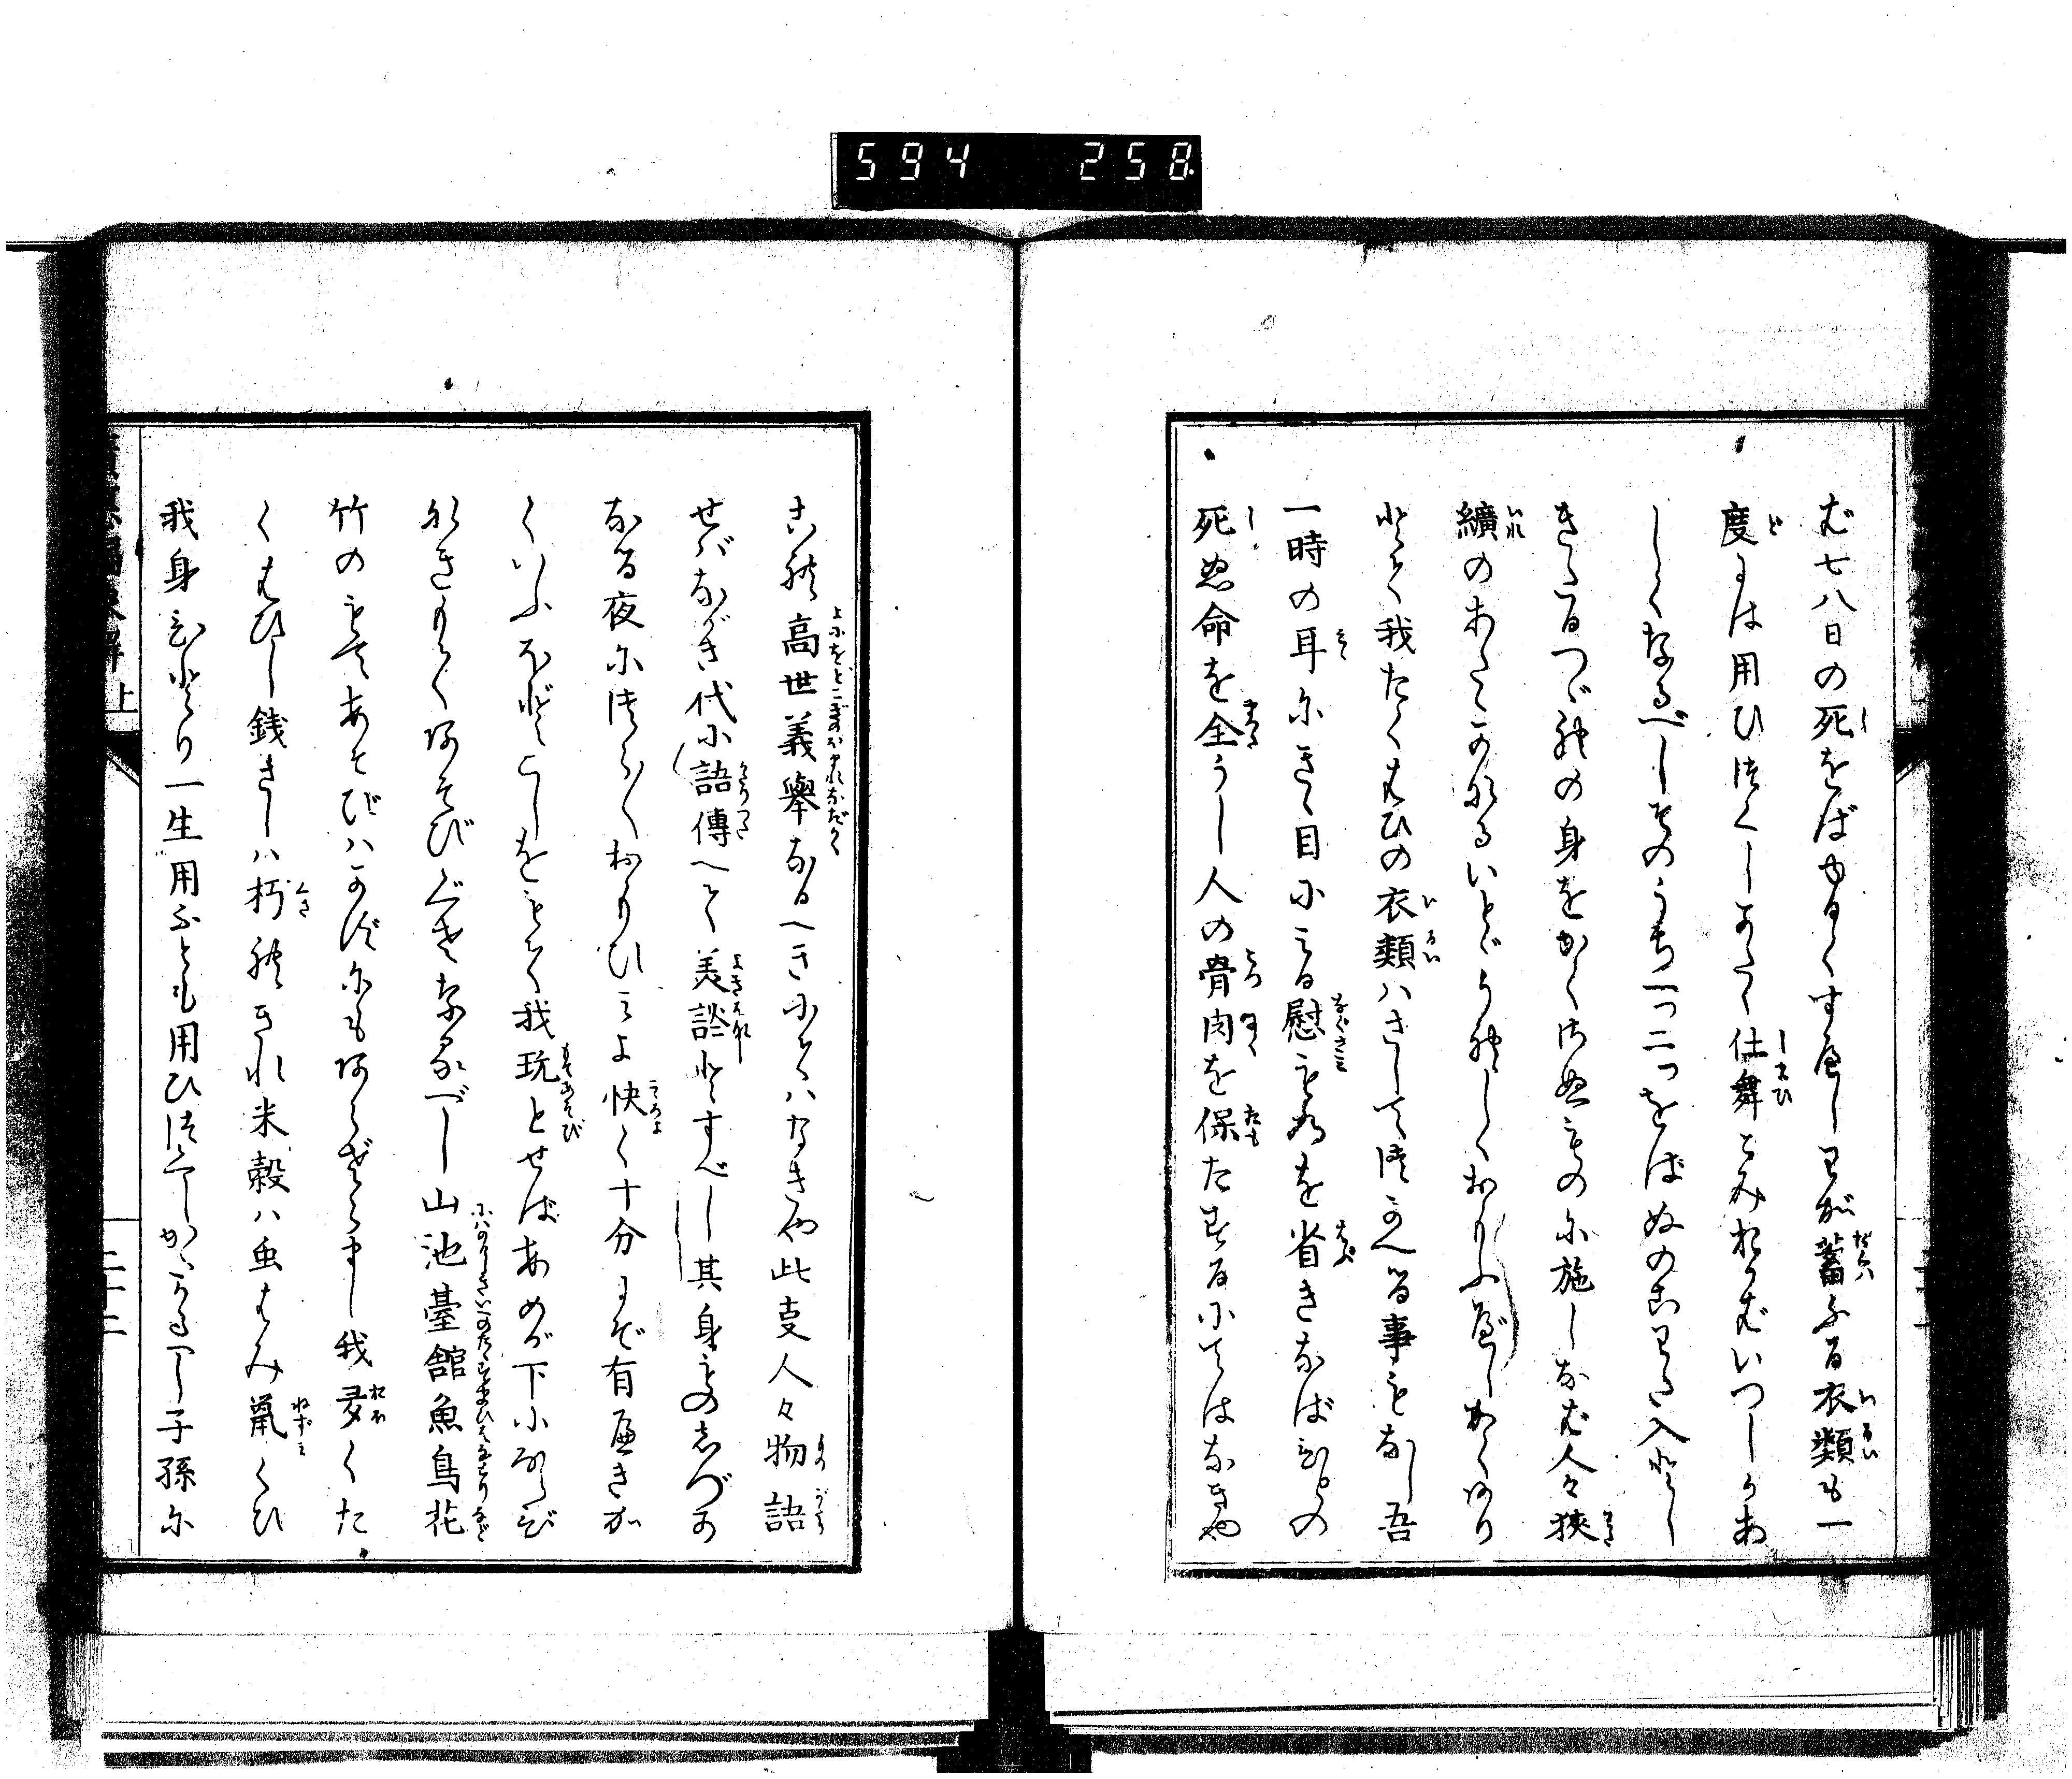 594 258
む七八日の死をばゆるくすべしわが蓄ふる衣類も一
度には用ひ尽くしあたく仕舞こみおかむいつしかあ
しくなるべしそのうち一つ二つをばぬのこわた入とし
きたるつゞれの身をかくさぬものに施しなむ人々狭
纊のあたゝかなるいとゞうれしくおもふべしかくあり
とて我たくはひの衣類ハさしてつかへる事もなし吾
一時の耳にきゝ目にみる慰ものを省きなばひとの
死ぬ命を全うし人の骨肉を保たするにてはなきや
これ高世義挙なるへきにてハなきや此支人々物語
せばながき代に語傳へて美談とすべし其身ものしづか
なる夜につらくおもひみよ快く十分にぞ有べきか
くいふほどこしをもて我玩とせばあめが下にならび
なきもてあそびぐさなるべし山池臺舘魚鳥花
竹のもてあそびハかずにもあらざらまし我多くた
くはひし銭さしハ朽れきれ米穀ハ虫はみ鼠くひ
我身ひとり一生用ふとも用ひ尽しがたかるべし子孫に
上
二十二